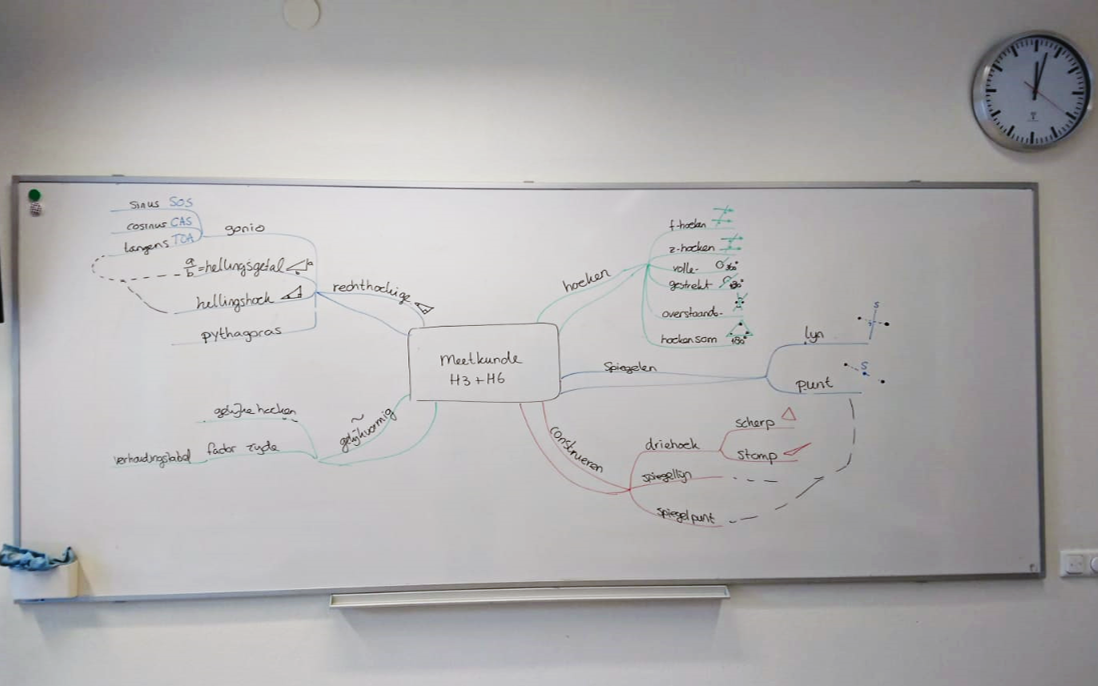 sinus SOS
cosinus CAS
tangens TOA
gonio
a/b = hellingsgetal
hellingshoek
pythagoras
rechthoekige
Meetkunde
H3 + H6
~
gelijkvormig
gelijke hoeken
factor zijde
verhoudingstabel
hoeken
f-hoeken
z-hoeken
volle- 360°
gestrekt 180°
overstaande-
hoekensom 180°
spiegelen
lijn S
punt S
construeren
driehoek
scherp
stomp
spiegellijn
spiegelpunt